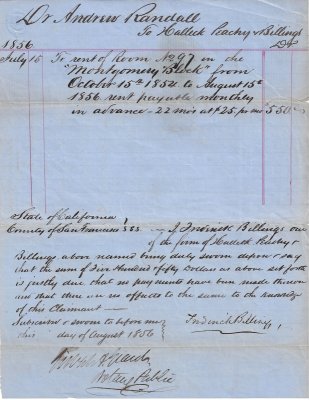 Dr Andrew Randall
To Halleck Peachy & Billings
1856 Dr
July 15 To rent of Room No 97 in the
"Montgomery Block" from
October 15th 1854 to August 15th
1856 rent payable monthly
in advance - 22 mos at $25. per mo 550
State of California
County of San Francisco } SS I Frederick Billings one
of the firm of Halleck Peachy &
Billings above named being duly sworn depose & say
that the sum of Five Hundred & fifty Dollars as above set forth
is justly due that no payments have been made thereon
and that there are no offsets to the same to the knowledge
of this Claimant
Subscribed & sworn to before me
this day of August 1856
Frederick Billings
Notary Public